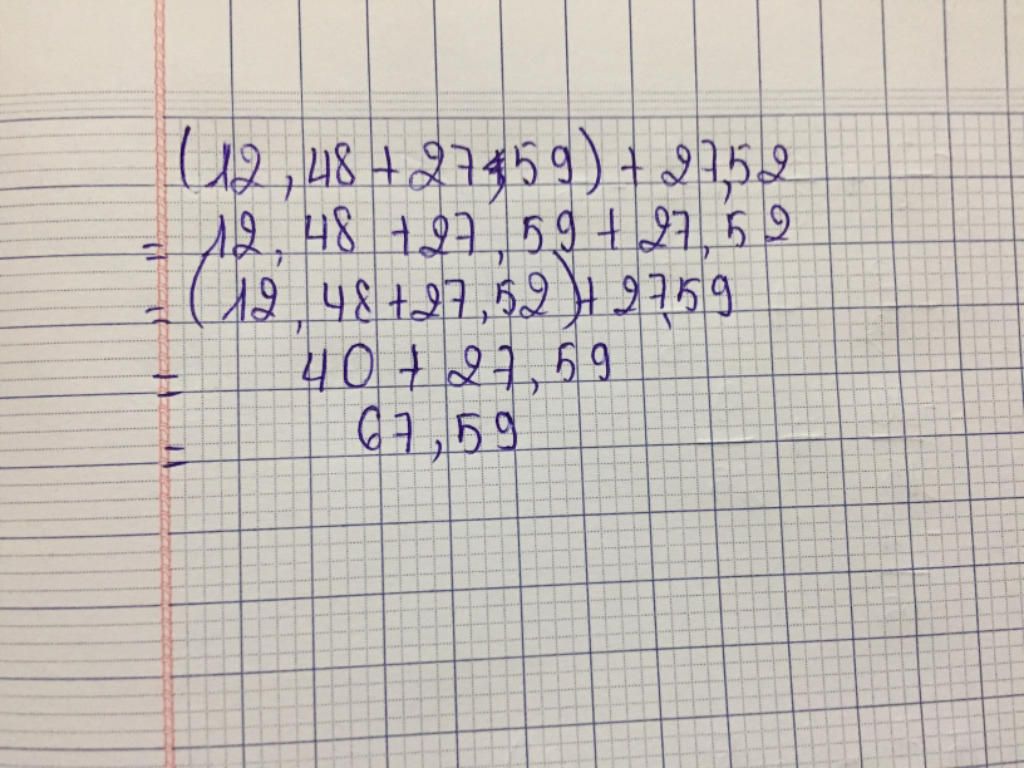 (12,48 + 27,59) + 27,52
= 12,48 + 27,59 + 27,52
= (12,48 + 27,52) + 27,59
= 40 + 27,59
= 67,59